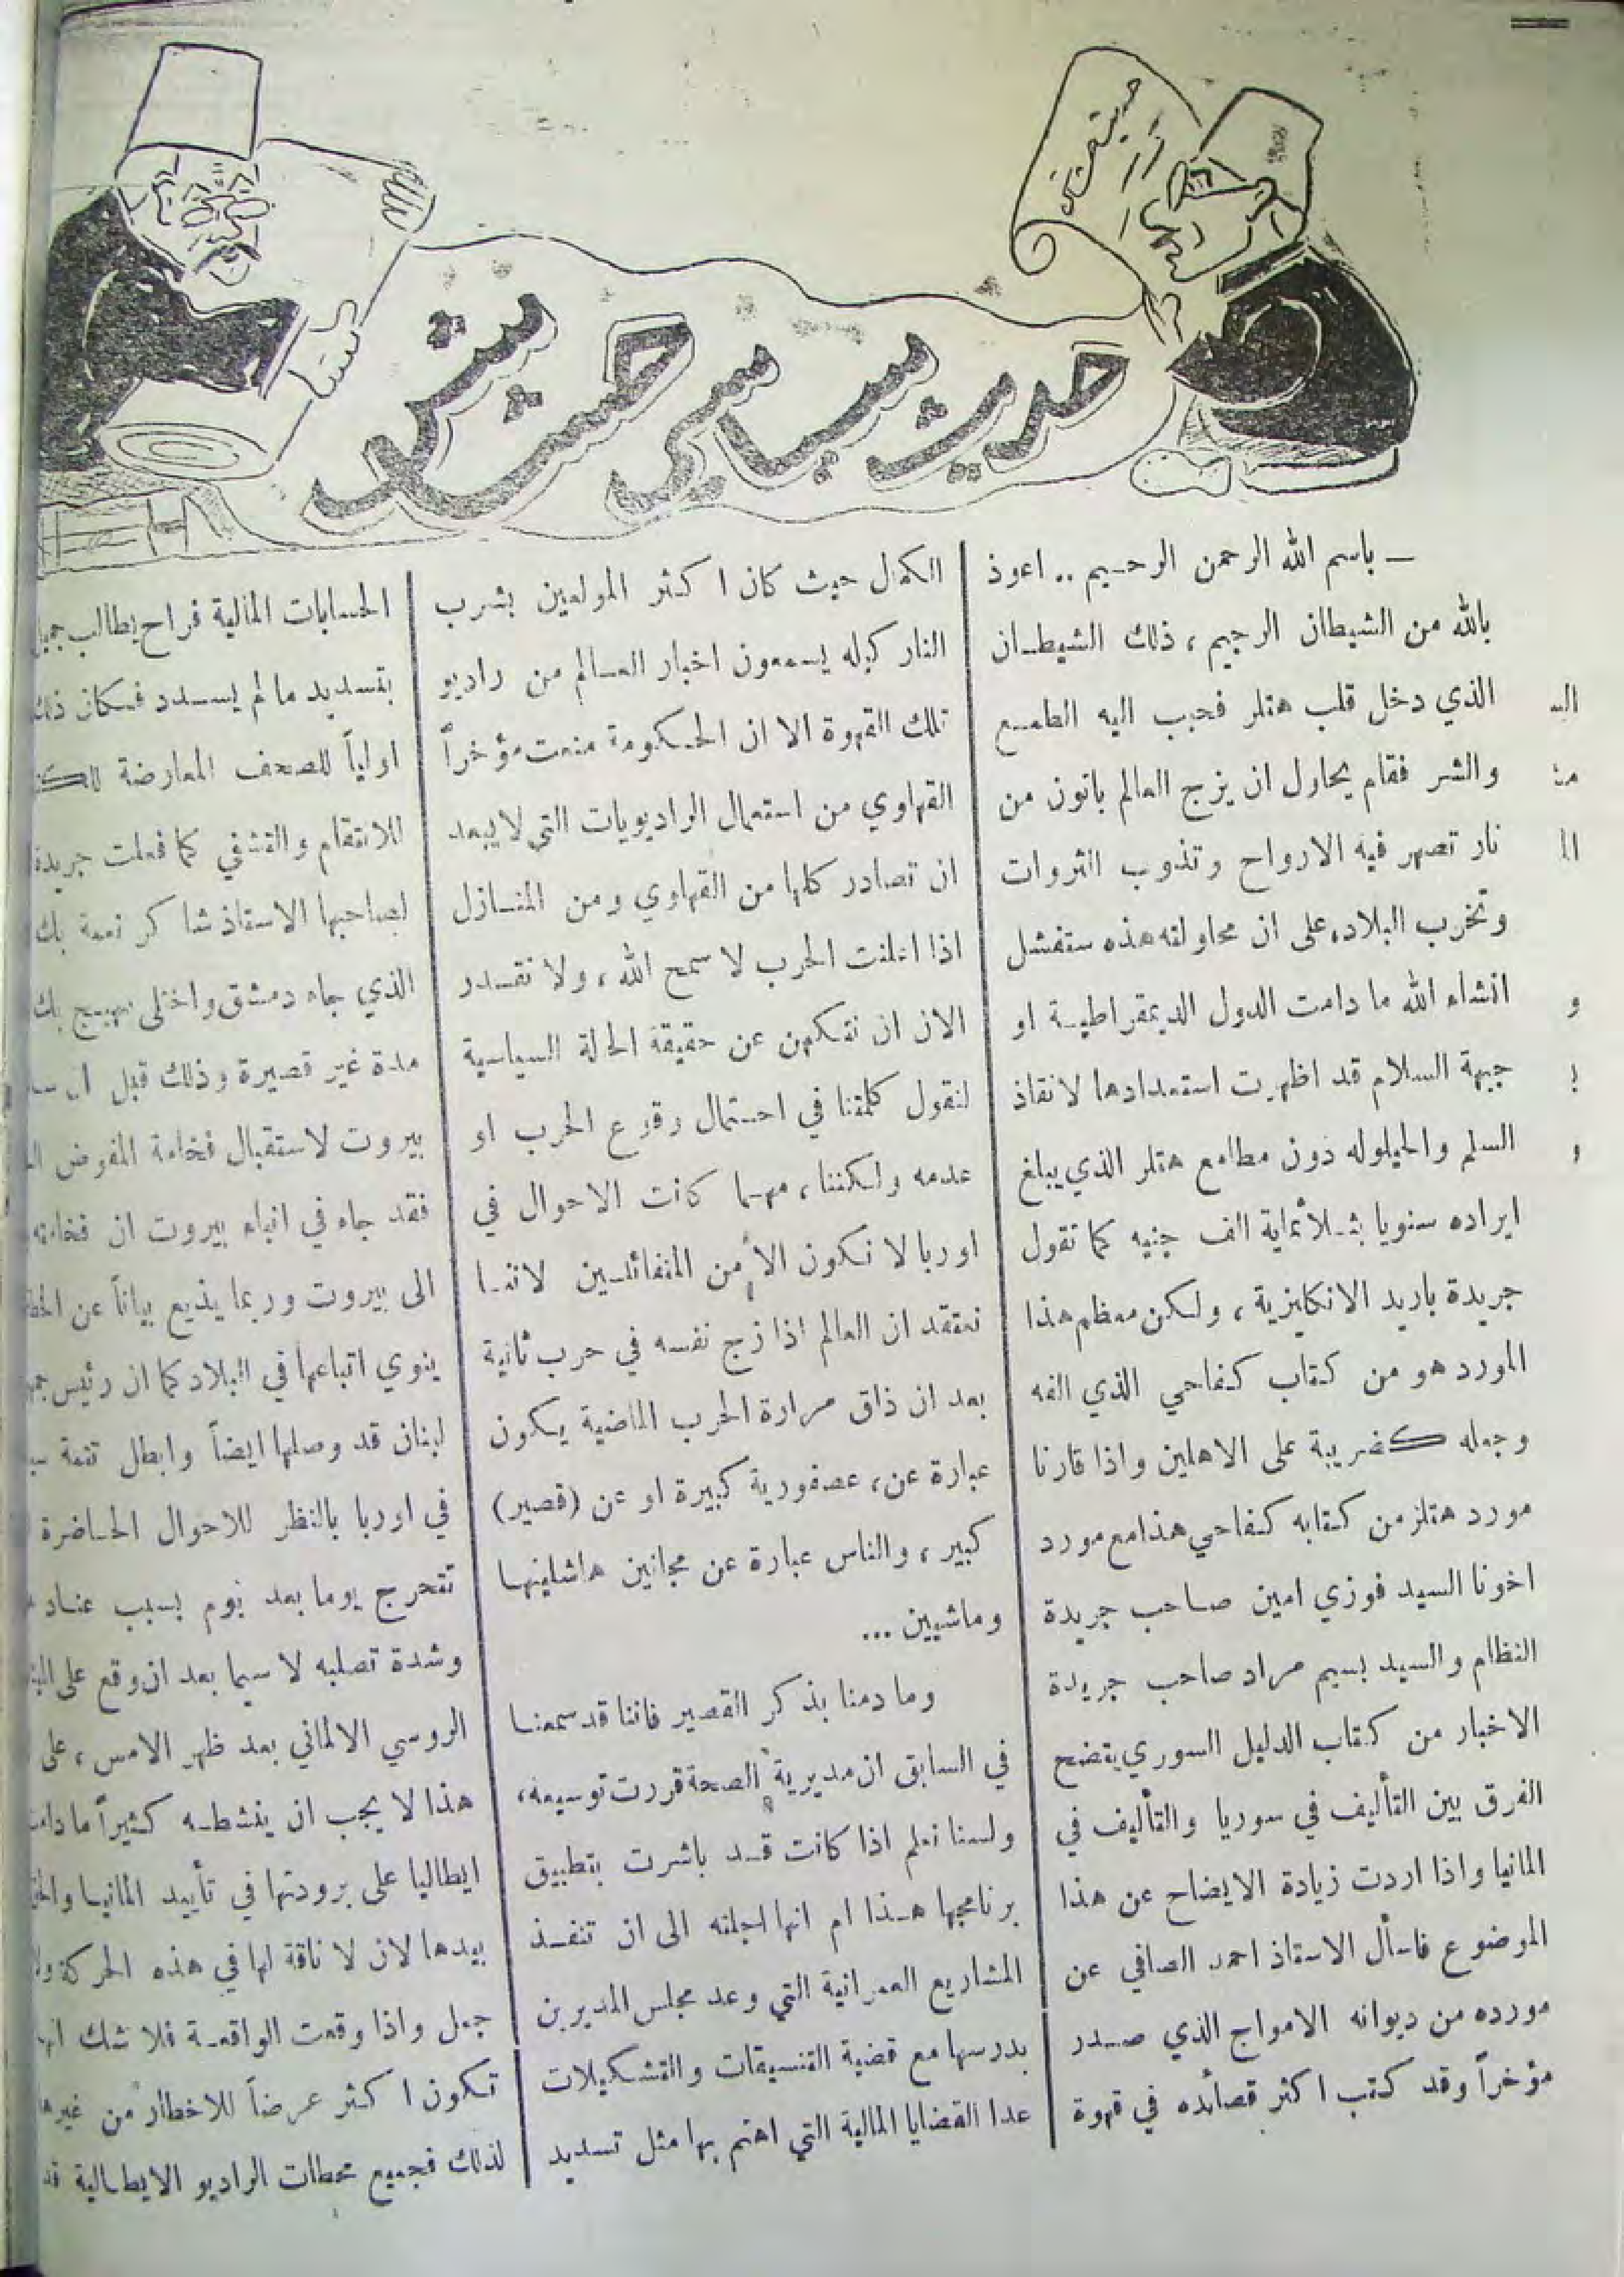 حديث سياسي حشاش
— باسم الله الرحمن الرحيم .. اعوذ
بالله من الشيطان الرجيم ، ذلك الشيطان
الذي دخل قلب هتلر فحبب اليه الطمع
والشر فقام يحاول ان يزج العالم باتون من
نار تصهر فيه الارواح وتذوب الثروات
وتخرب البلاد، على ان محاولته هذه ستفشل
انشاء الله ما دامت الدول الديمقراطية او
جبهة السلام قد اظهرت استعدادها لانقاذ
السلم والحيلوله دون مطامع هتلر الذي يبلغ
ايراده سنويا بثلاثماية الف جنيه كما تقول
جريدة باريد الانكليزية ، ولكن معظم هذا
المورد هو من كتاب كفاحي الذي الفه
وجعله كضريبة على الاهلين واذا قارنا
مورد هتلر من كتابه كفاحي هذا مع مورد
اخونا السيد فوزي امين صاحب جريدة
النظام والسيد بسيم مراد صاحب جريدة
الاخبار من كتاب الدليل السوري يتضح
الفرق بين التأليف في سوريا والتأليف في
المانيا واذا اردت زيادة الايضاح عن هذا
الموضوع فاسأل الاستاذ احمد الصافي عن
مورده من ديوانه الامواج الذي صدر
مؤخراً وقد كتب اكثر قصائده في قهوة
الكمال حيث كان اكثر المولعين بشرب
النار كيله يسمعون اخبار العالم من راديو
تلك القهوة الا ان الحكومة منعت مؤخراً
القهاوي من استعمال الراديويات التي لا يبعد
ان تصادر كلها من القهاوي ومن المنازل
اذا اعلنت الحرب لا سمح الله ، ولا نقدر
الان ان نتكهن عن حقيقة الحالة السياسية
لنقول كلمتنا في احتمال وقوع الحرب او
عدمه ولكننا ، مهما كانت الاحوال في
اوربا لا نكون الا من المتفائلين لاننا
نعتقد ان العالم اذا زج نفسه في حرب ثانية
بعد ان ذاق مرارة الحرب الماضية يكون
عبارة عن ، عصفورية كبيرة او عن (قصير)
كبير ، والناس عبارة عن مجانين هاشلينها
وماشيين ...
وما دمنا بذكر القصير فاننا قد سمعنا
في السابق ان مديرية الصحة قررت توسيعه ،
ولسنا نعلم اذا كانت قد باشرت بتطبيق
برنامجها هذا ام انها اجلته الى ان تنفذ
المشاريع العمرانية التي وعد مجلس المديرين
بدرسها مع قضية التنسيقات والتشكيلات
عدا القضايا المالية التي اهتم بها مثل تسديد
الحسابات المالية فراح يطالب جميل
بتسديد ما لم يسدد فكان ذلك
اولياً للصحف المعارضة
للانتقام والتشفي كما فعلت جريدة
لصاحبها الاستاذ شاكر نعمة بك
الذي جاء دمشق واختلى ببهيج بك
مدة غير قصيرة وذلك قبل ان
بيروت لاستقبال فخامة المفوض
فقد جاء في انباء بيروت ان فخامته
الى بيروت وربما يذيع بياناً عن
ينوي اتباعها في البلاد كما ان رئيس
لبنان قد وصلها ايضاً وابطل تتمة
في اوربا بالنظر للاحوال الحاضرة
تتحرج يوما بعد يوم بسبب عناد
وشدة تصلبه لا سيما بعد ان وقع على
الروسي الالماني بعد ظهر الامس ، على
هذا لا يجب ان ينشطه كثيراً ما دامت
ايطاليا على برودتها في تأييد المانيا
بيدها لان لا ناقة لها في هذه الحركة ولا
جمل واذا وقعت الواقعة فلا شك انها
تكون اكثر عرضاً للاخطار من غيرها
لذلك فجميع محطات الراديو الايطالية قد